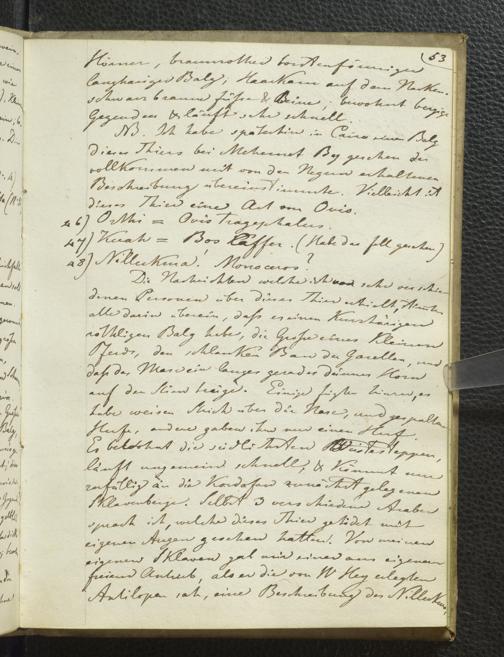 53
Hörner, braunrother borstenförmiger
langhariger Balg; Haarkam auf dem Nacken.
schwarzbraune füsse & Beine; bewohnt bergige
Gegenden & läuft sehr schnell.
NB. Ich habe späterhin in Cairo einen Balg
dieses Thiers bei Mehemet Bey gesehen der
vollkommen mit von den Negern erhaltenen
Beschreibung übereinstimmte. Vielleicht ist
dieses Thier eine Art von Ovis.
46) = Ovis Tragephalus.
47) = Bos Caffer. (Habe das fell gesehen)
48) Nillekma. Monoceros?
Die Nachrichten welche ich von sehr verschie
denen Personen über dieses Thier erhielt,
alle darin überein, dass es einen Kurzhärigen
röthligen Balg habe, die Grosse eines Kleinern
Pferds, den schlanken Bau der Gazellen, und
dass das Mas ein langes gerades dünnes Horn
auf der Stirn trage. Einige fügten hinzu, es
habe weisen Strich über die Nase, und gespaltene
Hufe, andere gaben ihm nur einen Huf.
Es bewohnt die südlichsten Wüstesteppen,
läuft ungemein schnell, & Kömmt nur
zufällig an die Kordofan zunächst gelegenen
Sklavenberge. Selbst 3 verschiedene Araber
sprach ich, welche dieses Thier getödet mit
eigenen Augen gesehen hatten. Von meinen
eigenen Sklaven gab mir einer aus eigenem
freien Antrieb, als er die von H Hey erlegten
Antilopen sah, eine Beschreibung des